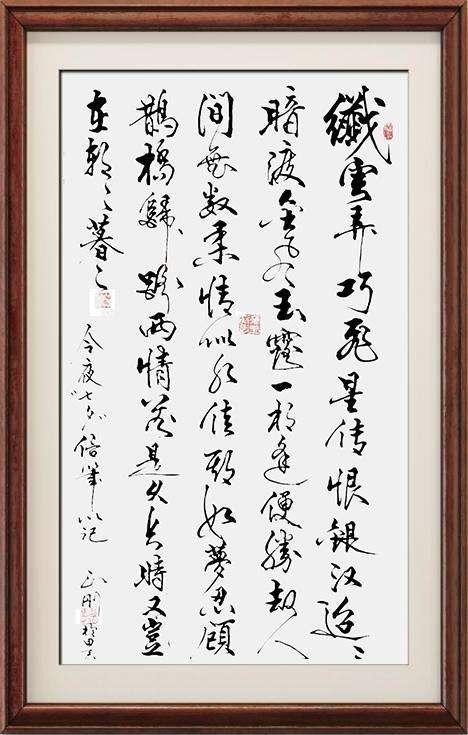 纖雲弄巧飛星传恨銀汉迢〻
暗渡金风玉露一相逢便勝却人
間無数柔情似水佳期如夢忍顧
鵲橋歸路两情若是久長時又豈
在朝〻暮〻
今夜七夕信筆以记 正刚